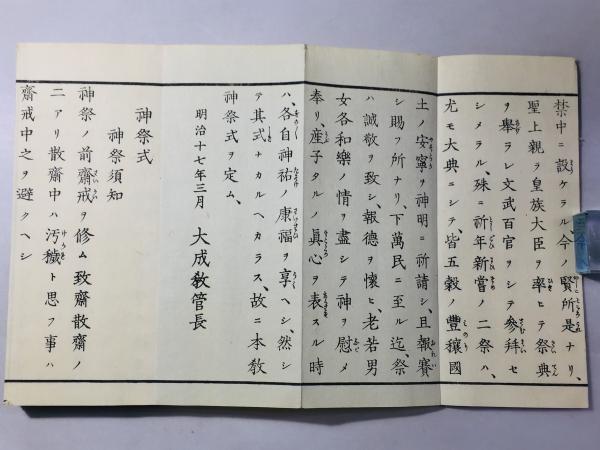 禁中ニ設ケラル、今ノ賢所是ナリ、
聖上親ラ皇族大臣ヲ率ヒテ祭典
ヲ擧ラレ文武百官ヲシテ參拜セ
シメラル、殊ニ祈年新嘗ノ二祭ハ、
尤モ大典ニシテ、皆五穀ノ豐穰國
土ノ安寧ヲ神明ニ祈請シ、且報賽
シ賜フ所ナリ、下萬民ニ至ル迄、祭
ハ誠敬ヲ致シ、報德ヲ懷ヒ、老若男
女各和樂ノ情ヲ盡シテ神ヲ慰メ
奉リ、産子タルノ眞心ヲ表スル時
ハ、各自神祐ノ康福ヲ享ヘシ、然シ
テ其式ナカルヘカラス、故ニ本敎
神祭式ヲ定ム、
明治十七年三月 大成敎管長
神祭式
神祭須知
神祭ノ前齋戒ヲ修ム致齋散齋ノ
二アリ散齋中ハ汚穢ト思フ事ハ
齋戒中之ヲ避クヘシ